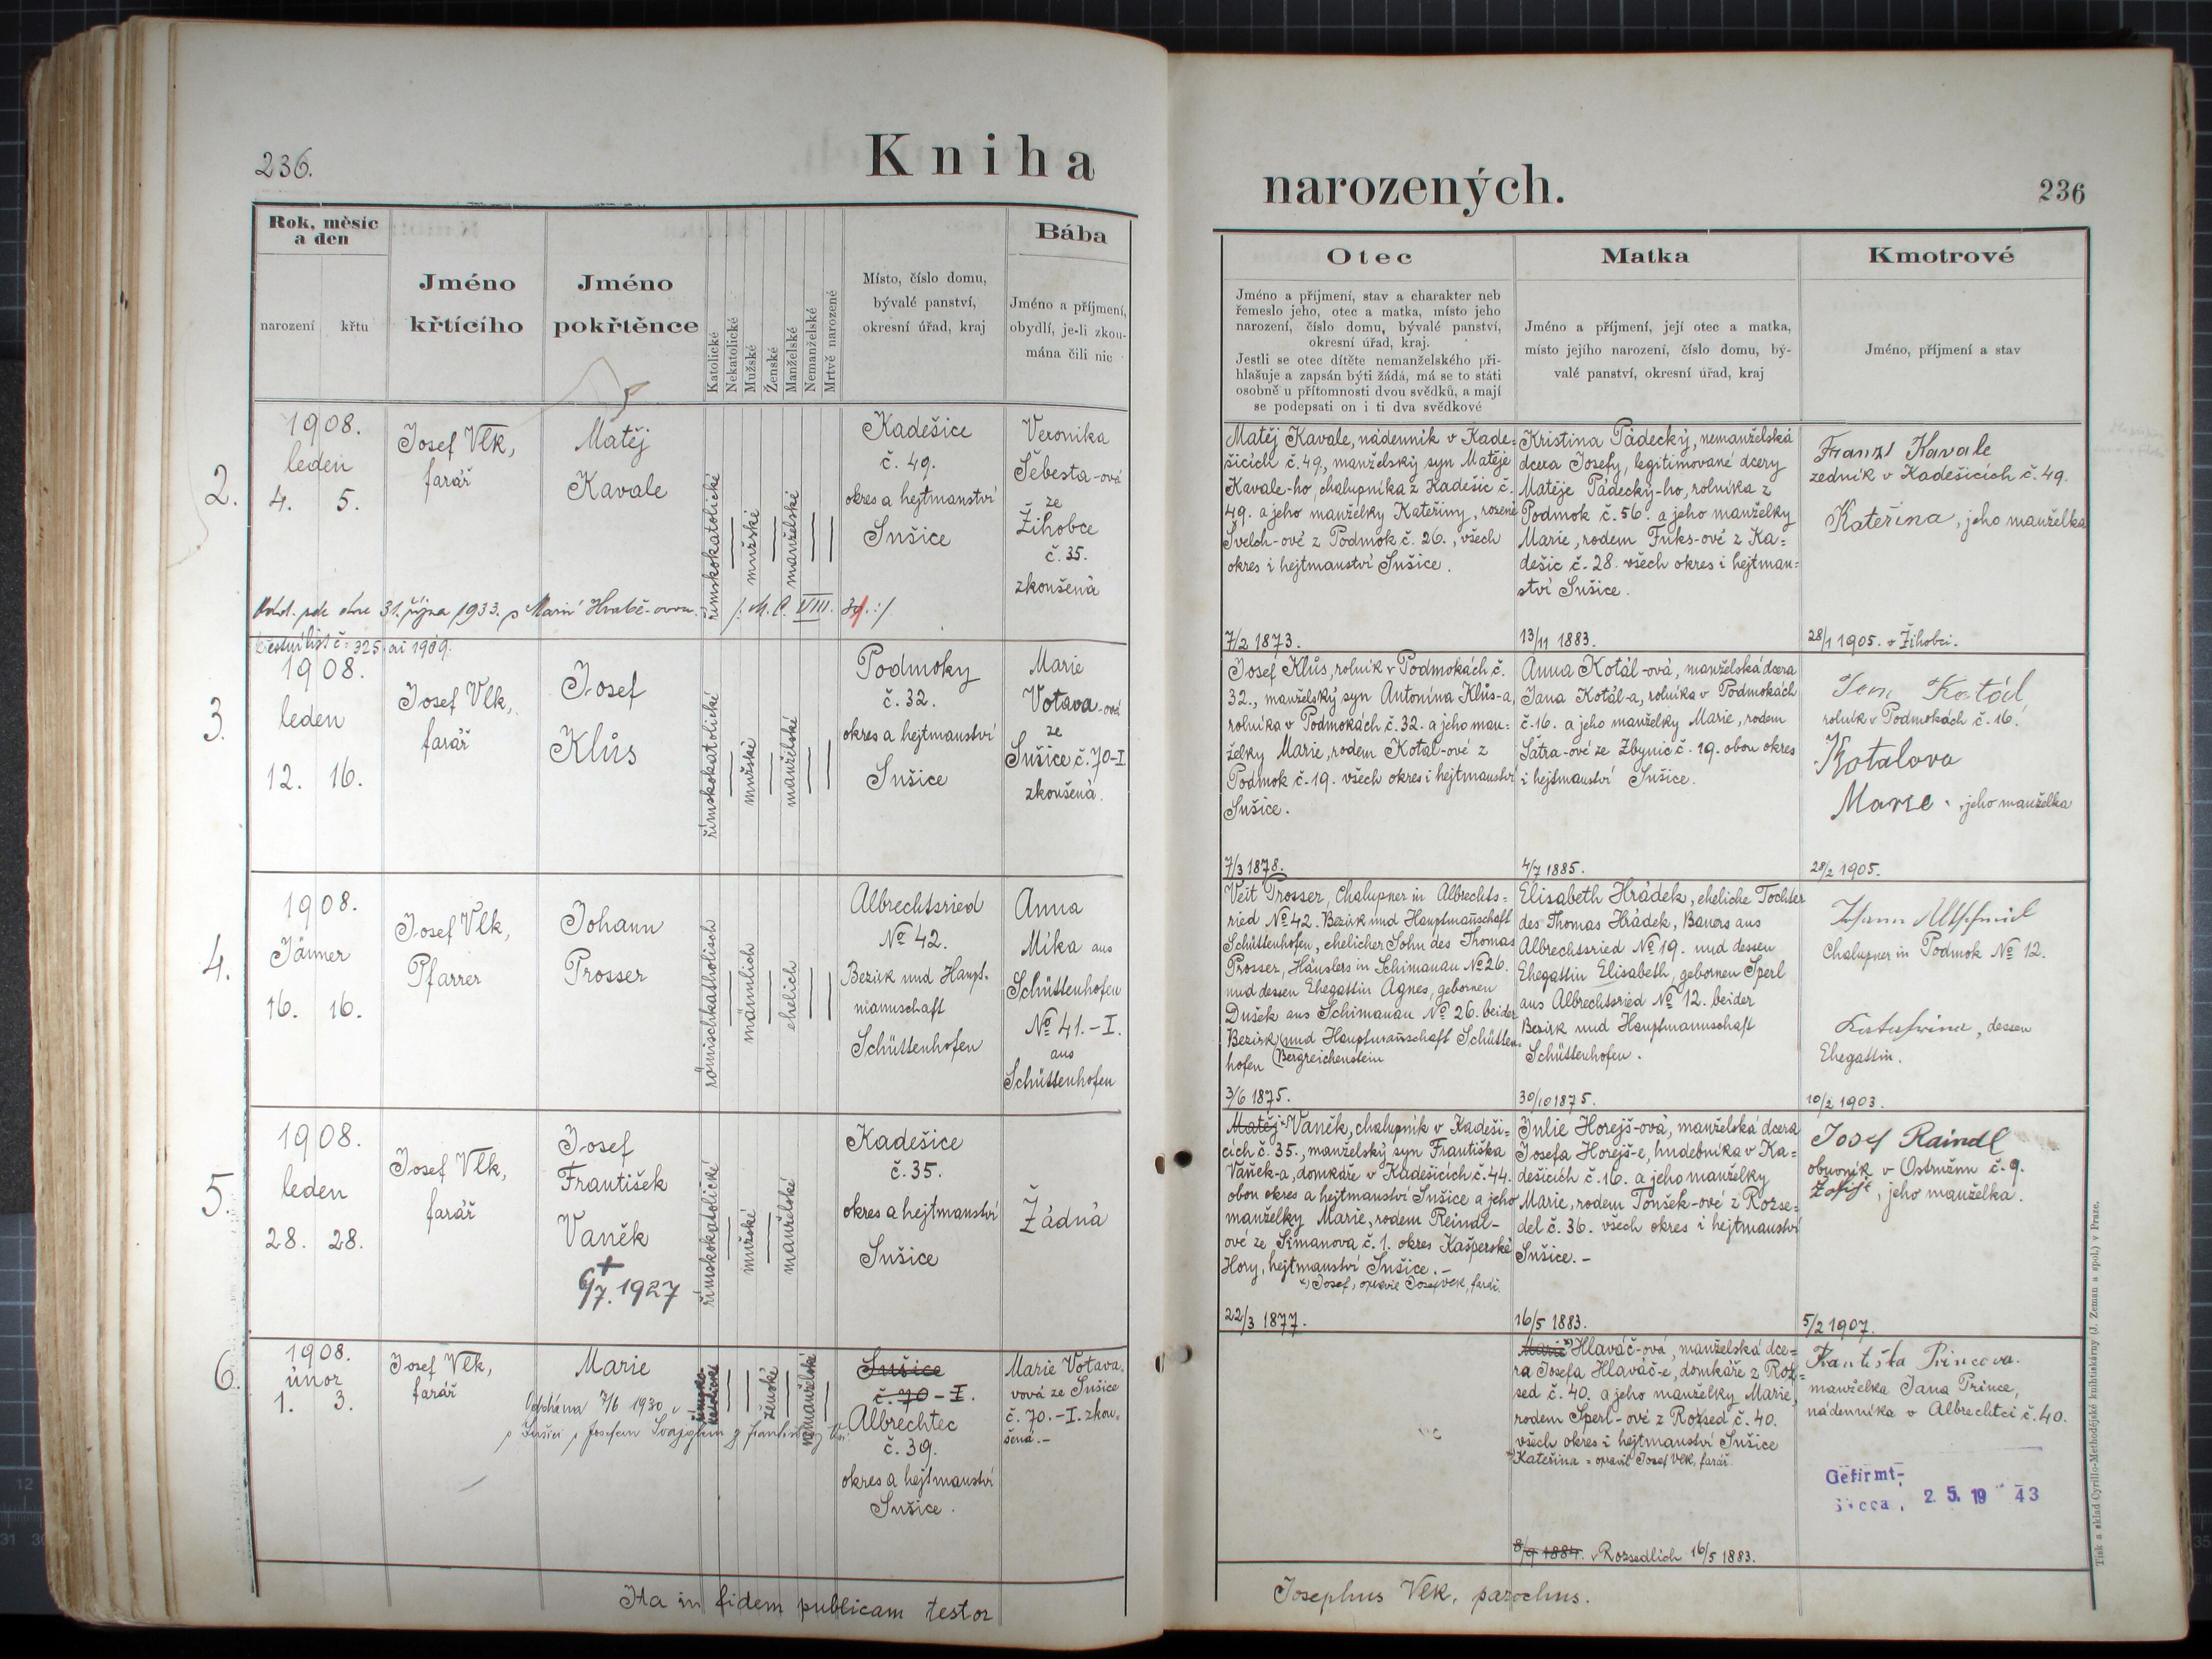 236.
Kniha
narozených.
236
Rok, měsíc
a den
narození
křtu
Jméno
křtícího
Jméno
pokřtěnce
Katolické
Nekatolické
Mužské
Ženské
Manželské
Nemanželské
Mrtvě narozené
Místo, číslo domu,
bývalé panství,
okresní úřad, kraj
Bába
Jméno a příjmení,
obydlí, je-li zkou-
mána čili nic
Otec
Jméno a příjmení, stav a charakter neb
řemeslo jeho, otec a matka, místo jeho
narození, číslo domu, bývalé panství,
okresní úřad, kraj.
Jestli se otec dítěte nemanželského při-
hlašuje a zapsán býti žádá, má se to státi
osobně u přítomnosti dvou svědků, a mají
se podepsati on i ti dva svědkové
Matka
Jméno a příjmení, její otec a matka,
místo jejího narození, číslo domu, bý-
valé panství, okresní úřad, kraj
Kmotrové
Jméno, příjmení a stav
2.
1908.
leden
4. 5.
Josef Vlk,
farář
Matěj
Kavale
římskokatolické
mužské
manželské
Kadešice
č. 49.
okres a hejtmanství
Sušice
Veronika
Šebesta-ová
ze
Žihobce
č. 35.
zkoušená
31. října 1933. s Marií Hrabě-ovou. /: M. C. VIII. :/
Matěj Kavale, nádenník v Kade=
šicích č. 49., manželský syn Matěje
Kavale-ho, chalupníka z Kadešic č.
49. a jeho manželky Kateřiny, rozené
Švelch-ové z Podmok č. 26., všech
okres i hejtmanství Sušice.
7/2 1873.
Kristina Pádecký, nemanželská
dcera Josefy, legitimované dcery
Matěje Pádecký-ho, rolníka z
Podmok č. 56. a jeho manželky
Marie, rodem Fuks-ové z Ka=
dešic č. 28. všech okres i hejtman=
ství Sušice.
13/11 1883.
Franz Kavale
zedník v Kadešicích č. 49.
Kateřina, jeho manželka
28/1 1905. v Žihobci.
3.
č. 325 1909.
1908.
leden
12. 16.
Josef Vlk,
farář
Josef
Klůs
římskokatolické
mužské
manželské
Podmoky
č. 32.
okres a hejtmanství
Sušice
Marie
Votava-ová
ze
Sušice č. 70-I
zkoušená.
Josef Klůs, rolník v Podmokách č.
32., manželský syn Antonína Klůs-a,
rolníka v Podmokách č. 32. a jeho man=
želky Marie, rodem Kotál-ové z
Podmok č. 19. všech okres i hejtmanství
Sušice.
7/3 1878.
Anna Kotál-ová, manželská dcera
Jana Kotál-a, rolníka v Podmokách
č. 16. a jeho manželky Marie, rodem
Šatra-ové ze Zbynic č. 19. obou okres
i hejtmanství Sušice.
4/7 1885.
Jan Kotál
rolník v Podmokách č. 16.
Kotalova
Marie, jeho manželka
28/2 1905.
4.
1908.
Jänner
16. 16.
Josef Vlk,
Pfarrer
Johann
Prosser
römischkatholisch
männlich
ehelich
Albrechtsried
No 42.
Bezirk und Haupt-
mannschaft
Schüttenhofen
Anna
Mika aus
Schüttenhofen
No 41.-I.
aus
Schüttenhofen
Veit Prosser, Chalupner in Albrechts=
ried No 42. Bezirk und Hauptmannschaft
Schüttenhofen, ehelicher Sohn des Thomas
Prosser, Häuslers in Schimanau No 26.
und dessen Ehegattin Agnes, gebornen
Dušek aus Schimanau No 26. beider
Bezirk und Hauptmannschaft Schütten-
hofen (Bergreichenstein
3/6 1875.
Elisabeth Hrádek, eheliche Tochter
des Thomas Hrádek, Bauers aus
Albrechtsried No 19. und dessen
Ehegattin Elisabeth, gebornen Sperl
aus Albrechtsried No 12. beider
Bezirk und Hauptmannschaft
Schüttenhofen.
30/10 1875.
Johann Altschmid
Chalupner in Podmok No 12.
Katharina, dessen
Ehegattin.
10/2 1903.
5.
1908.
leden
28. 28.
Josef Vlk,
farář
Josef
František
Vaněk
+
6/7. 1927
římskokatolické
mužské
manželské
Kadešice
č. 35.
okres a hejtmanství
Sušice
Žádná
Matěj Vaněk, chalupník v Kadeši=
cích č. 35., manželský syn Františka
Vaněk-a, domkáře v Kadešicích č. 44.
obou okres a hejtmanství Sušice a jeho
manželky Marie, rodem Reindl-
ové ze Simanova č. 1. okres Kašperské
Hory, hejtmanství Sušice.-
x) Josef, opravil Josef Vlk, farář.
22/3 1877.
Julie Horejš-ová, manželská dcera
Josefa Horejš-e, hudebníka v Ka=
dešicích č. 16. a jeho manželky
Marie, rodem Tonšek-ové z Rozse=
del č. 36. všech okres i hejtmanství
Sušice.-
16/5 1883.
Josef Raindl
obuvník v Ostružnu č. 9.
Žofije, jeho manželka.
5/2 1907.
6.
1908.
únor
1. 3.
Josef Vlk,
farář
Marie
Oddána 7/6 1930 v
římsko-
katolické
ženské
nemanželské
Sušice
č. 70-I.
Albrechtec
č. 39.
okres a hejtmanství
Sušice.
Marie Votava-
vová ze Sušice
č. 70.-I. zkou=
šená.-
Marie x) Hlaváč-ová, manželská dce=
ra Josefa Hlaváč-e, domkáře z Roz=
sed č. 40. a jeho manželky Marie,
rodem Sperl-ové z Rozsed č. 40.
všech okres i hejtmanství Sušice
x) Kateřina = opravil Josef Vlk, farář.
8/9 1884. v Rozsedlích 16/5 1883.
Františka Princova.
manželka Jana Prince,
nádenníka v Albrechtci č. 40.
Gefirmt-
2. 5. 19 43
Ita in fidem publicam testor
Josephus Vlk, parochus.
Tisk a sklad Cyrillo-Methodějské knihtiskárny (J. Zeman a spol.) v Praze.